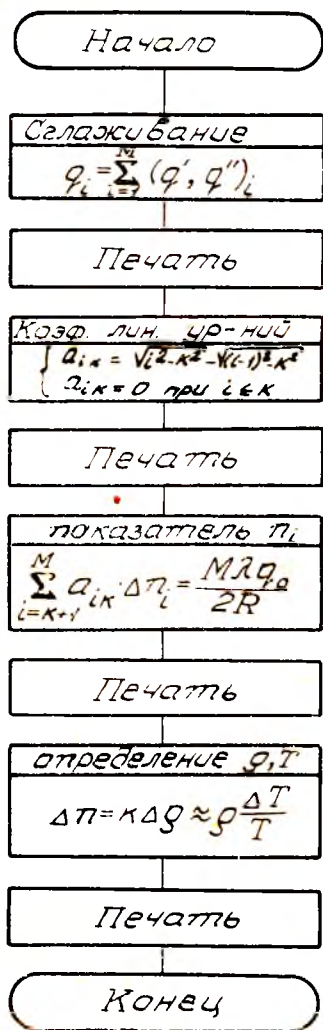 Начало
Сглаживание
q_i = \sum_{i=1}^{M} (q', q'')_i
Печать
Коэф. лин. ур-ний
a_{iк} = √(i²-к²) - √((i-1)²-к²)
a_{iк} = 0 при i ≤ к
Печать
показатель n_i
\sum_{i=к+1}^{M} a_{iк} Δn_i = \frac{Mλq_0}{2R}
Печать
определение ρ,T
Δn = кΔρ ≈ ρ \frac{ΔT}{T}
Печать
Конец